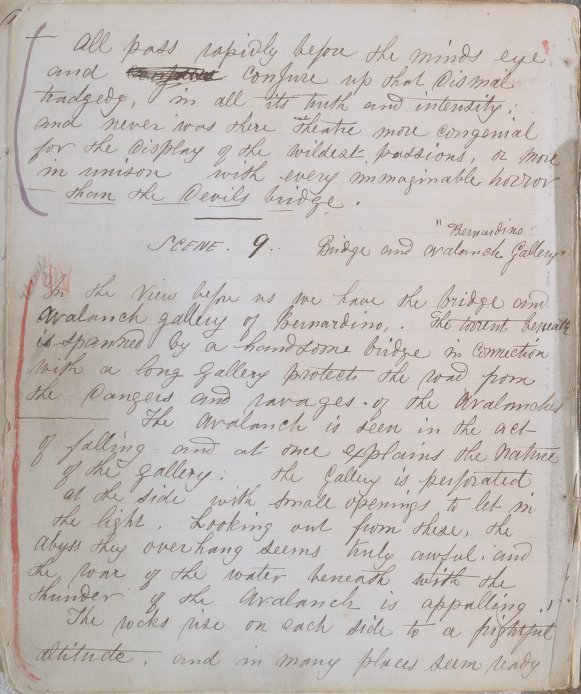 All pass rapidly before the minds eye
and conjure up that dismal
tradgedy, in all its truth and intensity;
and never was there theatre more congenial
for the display of the wildest passions, or more
in unison with every immaginable horror
than the Devils bridge.
SCENE. 9. Bridge and Avalanch Gallery
"Bernardino."
In the View before us we have the bridge and
Avalanch gallery of Bernardino,. The torrent beneath
is spanned by a handsome bridge in connection
with a long gallery protects the road from
the dangers and ravages of the Avalanches
The Avalanch is seen in the act
of falling and at once explains the nature
of the gallery: the Gallery is perforated
at the side with small openings to let in
the light. Looking out from these, the
abyss they overhang seems truly awful; and
the roar of the water beneath with the
thunder of the Avalanch is appalling.
The rocks rise on each side to a frightful
altitude, and in many places seem ready